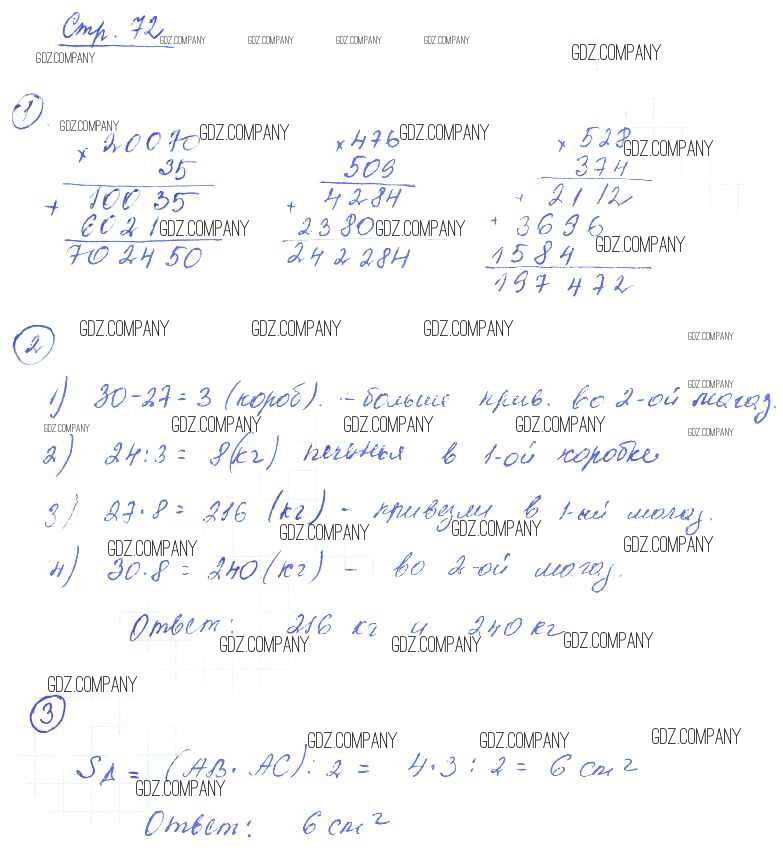 Стр. 72
GDZ.COMPANY GDZ.COMPANY GDZ.COMPANY GDZ.COMPANY GDZ.COMPANY GDZ.COMPANY
1
GDZ.COMPANY GDZ.COMPANY GDZ.COMPANY GDZ.COMPANY
× 20070 × 476 × 528
35 509 374
+ 10035 + 4284 + 2112
6021 2380 + 3696
GDZ.COMPANY GDZ.COMPANY GDZ.COMPANY
702450 242284 1584
197472
GDZ.COMPANY GDZ.COMPANY GDZ.COMPANY GDZ.COMPANY
2
GDZ.COMPANY
1) 30-27=3 (короб). - больше прив. во 2-ой магаз.
GDZ.COMPANY GDZ.COMPANY GDZ.COMPANY GDZ.COMPANY GDZ.COMPANY
2) 24:3 = 8(кг) печенья в 1-ой коробке
3) 27·8 = 216 (кг) - привезли в 1-ый магаз.
GDZ.COMPANY GDZ.COMPANY GDZ.COMPANY GDZ.COMPANY
4) 30·8 = 240 (кг) - во 2-ой магаз.
Ответ: 216 кг и 240 кг
GDZ.COMPANY GDZ.COMPANY GDZ.COMPANY
GDZ.COMPANY
3
GDZ.COMPANY GDZ.COMPANY GDZ.COMPANY
S∆ = (AB · AC) : 2 = 4·3 : 2 = 6 см²
GDZ.COMPANY
Ответ: 6 см²